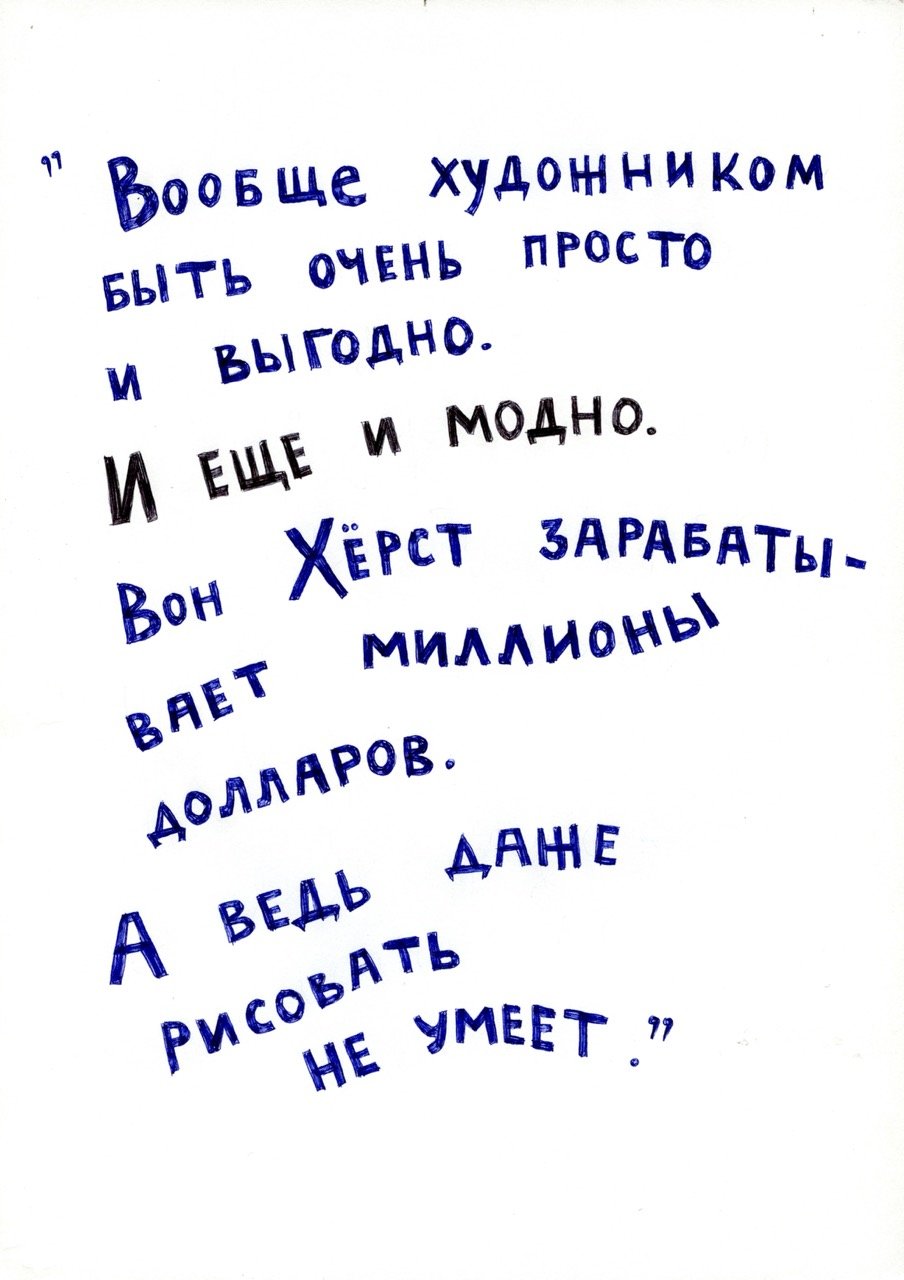 " Вообще художником
быть очень просто
и выгодно.
И еще и модно.
Вон Хёрст зарабаты-
вает миллионы
долларов.
А ведь даже
рисовать
не умеет."